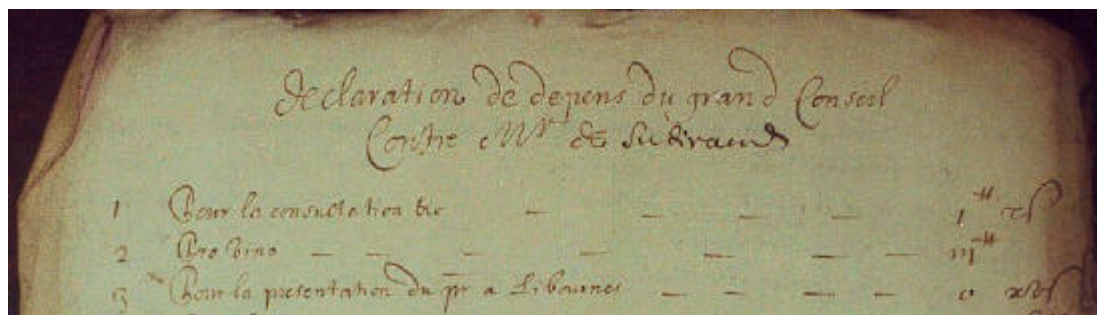 Declaration de depens du grand Conseil
Contre Mr de
1 Pour la consultation &c — — — — 1 ₶
2 Pro vino — — — — — — — iii ₶
3 Pour la presentation du pr a Libournes — — — — 0